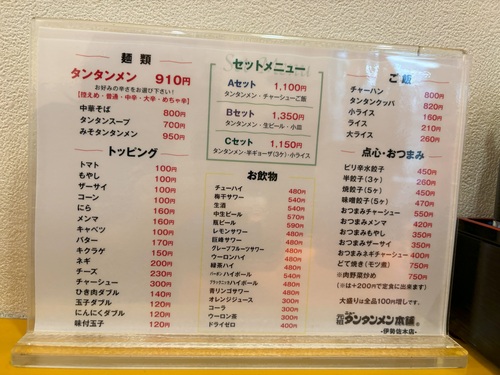 麺 類
タンタンメン 910円
お好みの辛さをお選び下さい!
【控えめ・普通・中辛・大辛・めちゃ辛】
中華そば 800円
タンタンスープ 700円
みそタンタンメン 950円
トッピング
トマト 100円
もやし 100円
ザーサイ 100円
コーン 100円
にら 160円
メンマ 160円
キャベツ 100円
バター 170円
キクラゲ 150円
ネギ 200円
チーズ 230円
チャーシュー 300円
ひき肉ダブル 140円
玉子ダブル 120円
にんにくダブル 120円
味付玉子 120円
セットメニュー
Aセット 1,100円
タンタンメン・チャーシューご飯
Bセット 1,350円
タンタンメン・生ビール・小皿
Cセット 1,150円
タンタンメン・半ギョーザ(3ケ)・小ライス
お飲物
チューハイ 480円
梅干サワー 540円
生酒 540円
中生ビール 570円
瓶ビール 590円
レモンサワー 480円
巨峰サワー 480円
グレープフルーツサワー 480円
ウーロンハイ 480円
緑茶ハイ 480円
ハイボール 480円
ハイボール 480円
青リンゴサワー 480円
オレンジジュース 300円
コーラ 300円
ウーロン茶 300円
ドライゼロ 400円
ご 飯
チャーハン 800円
タンタンクッパ 820円
小ライス 160円
ライス 210円
大ライス 260円
点心・おつまみ
ピリ辛水餃子 450円
半餃子(3ケ) 260円
焼餃子(5ケ) 450円
味噌餃子(5ケ) 470円
おつまみチャーシュー 550円
おつまみメンマ 420円
おつまみもやし 350円
おつまみザーサイ 350円
おつまみネギチャーシュー 400円
どて焼き(モツ煮) 750円
※肉野菜炒め 750円
(※は+200円で定食に出来ます)
大盛りは全品100円増しです。
元祖 ニュータンタンメン本舗
-伊勢佐木店-